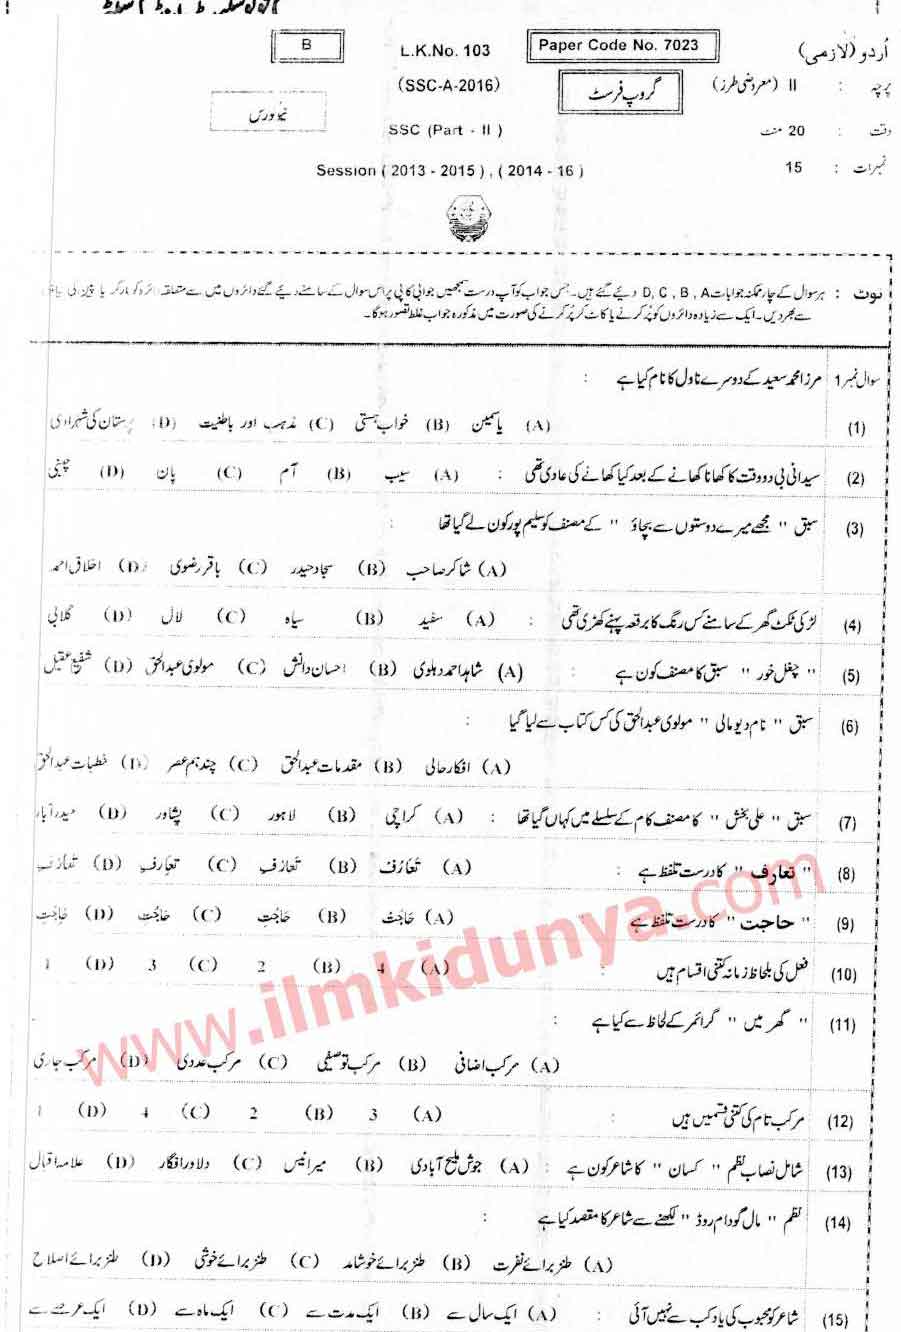 B
L.K.No. 103
Paper Code No. 7023
اُردو (لازمی)
(SSC-A-2016)
گروپ فرسٹ
پرچہ : II (معروضی طرز)
نیو کورس
SSC (Part - II)
وقت : 20 منٹ
Session ( 2013 - 2015 ) , ( 2014 - 16 )
نمبرات : 15
نوٹ : ہر سوال کے چار ممکنہ جوابات D, C, B, A دیئے گئے ہیں۔ جس جواب کو آپ درست سمجھیں جوابی کاپی پر اس سوال کے سامنے دیئے گئے دائروں میں سے متعلقہ دائرہ کو مارکر یا پین کی
سے بھر دیں۔ ایک سے زیادہ دائروں کو پُر کرنے یا کاٹ کر پُر کرنے کی صورت میں مذکورہ جواب غلط تصور ہوگا۔
سوال نمبر 1 مرزا محمد سعید کے دوسرے ناول کا نام کیا ہے :
(1) (A) یاسمین (B) خواب ہستی (C) مذہب اور باطنیت (D) پرستان کی شہزادی
(2) سیدانی بی دو وقت کا کھانا کھانے کے بعد کیا کھانے کی عادی تھی : (A) سیب (B) آم (C) پان (D) چینی
(3) سبق " مجھے میرے دوستوں سے بچاؤ " کے مصنف کو سلیم پور کون لے گیا تھا :
(A) شاکر صاحب (B) سجاد حیدر (C) باقر رضوی (D) اخلاق احمد
(4) لڑکی ٹکٹ گھر کے سامنے کس رنگ کا برقعہ پہنے کھڑی تھی : (A) سفید (B) سیاہ (C) لال (D) گلابی
(5) " چغل خور " سبق کا مصنف کون ہے : (A) شاہد احمد دہلوی (B) احسان دانش (C) مولوی عبدالحق (D) شفیع عقیل
(6) سبق " نام دیو مالی " مولوی عبدالحق کی کس کتاب سے لیا گیا :
(A) افکار حالی (B) مقدمات عبدالحق (C) چند ہم عصر (D) خطبات عبدالحق
(7) سبق " علی بخش " کا مصنف کام کے سلسلے میں کہاں گیا تھا : (A) کراچی (B) لاہور (C) پشاور (D) حیدر آباد
(8) " تعارف " کا درست تلفظ ہے : (A) تعارف (B) تعارف (C) تعارف (D) تعارف
(9) " حاجت " کا درست تلفظ ہے : (A) حاجت (B) حاجت (C) حاجت (D) حاجت
(10) فعل کی بلحاظ زمانہ کتنی اقسام ہیں : (A) 4 (B) 2 (C) 3 (D) 1
(11) " گھر میں " گرائمر کے لحاظ سے کیا ہے :
(A) مرکب اضافی (B) مرکب توصیفی (C) مرکب عددی (D) مرکب جاری
(12) مرکب تام کی کتنی قسمیں ہیں : (A) 3 (B) 2 (C) 4 (D) 1
(13) شامل نصاب نظم " کسان " کا شاعر کون ہے : (A) جوش ملیح آبادی (B) میر انیس (C) دلاور افگار (D) علامہ اقبال
(14) نظم " مال گودام روڈ " لکھنے سے شاعر کا مقصد کیا ہے :
(A) طنز برائے نفرت (B) طنز برائے خوشامد (C) طنز برائے خوشی (D) طنز برائے اصلاح
(15) شاعر کو محبوب کی یاد کب سے نہیں آئی : (A) ایک سال سے (B) ایک مدت سے (C) ایک ماہ سے (D) ایک عرصے سے
www.ilmkidunya.com